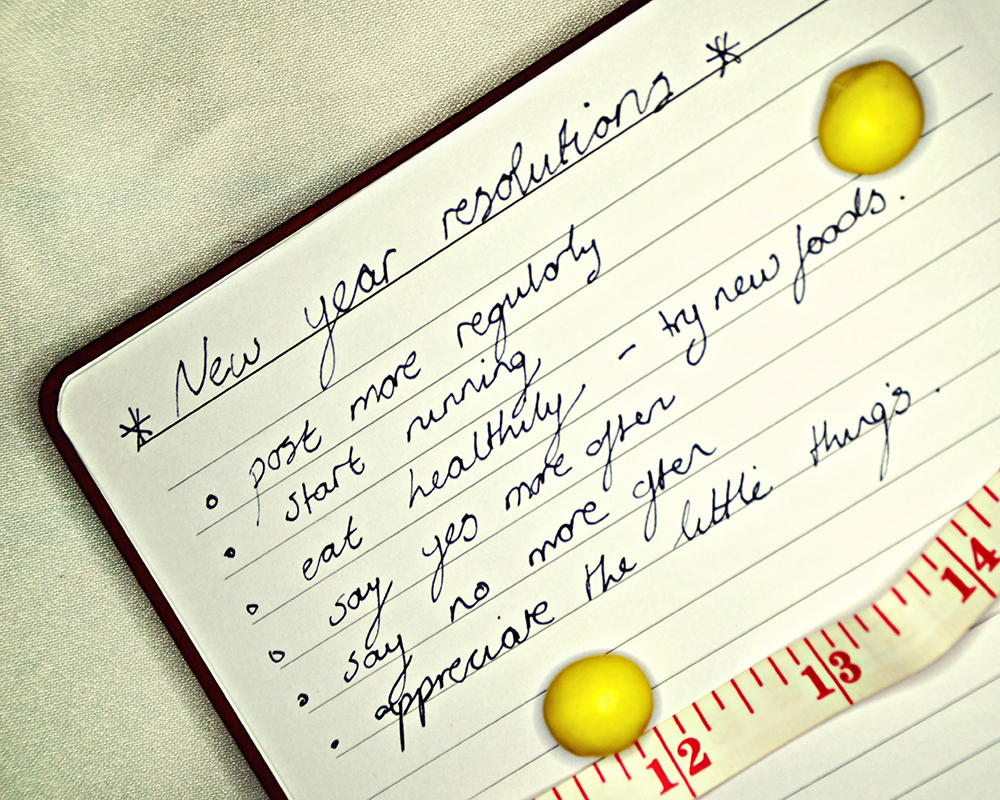 * New year resolutions *
• post more regularly
• start running
• eat healthily - try new foods.
• say yes more often
• say no more often
• appreciate the little things.
12 13 14